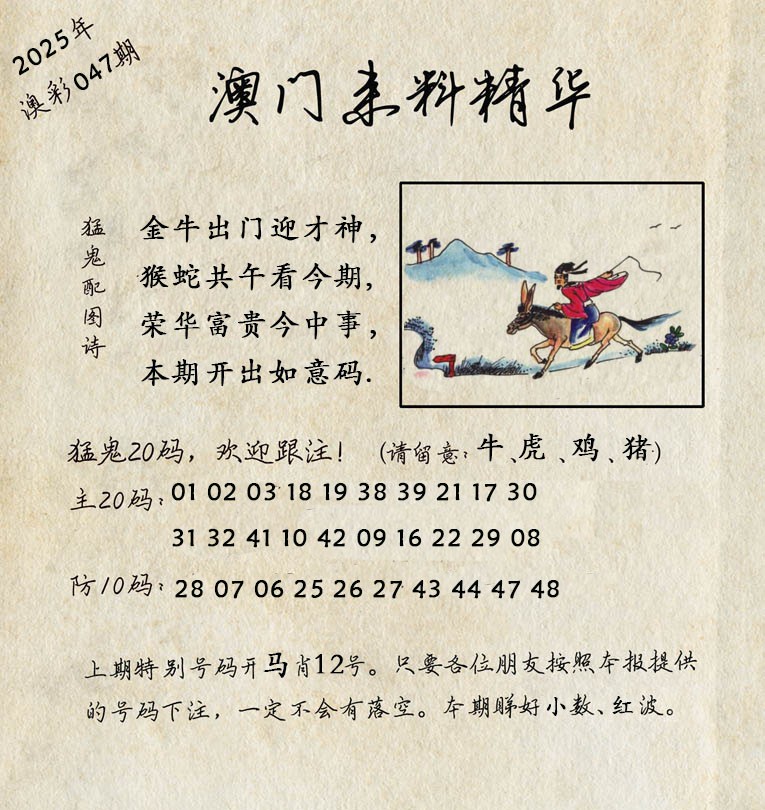 2025年
澳彩047期
澳门来料精华
猛鬼配图诗
金牛出门迎才神，
猴蛇共午看今期，
荣华富贵今中事，
本期开出如意码.
猛鬼20码，欢迎跟注！（请留意：牛、虎、鸡、猪）
主20码：01 02 03 18 19 38 39 21 17 30
31 32 41 10 42 09 16 22 29 08
防10码：28 07 06 25 26 27 43 44 47 48
上期特别号码开马肖12号。只要各位朋友按照本报提供
的号码下注，一定不会有落空。本期睇好小数、红波。